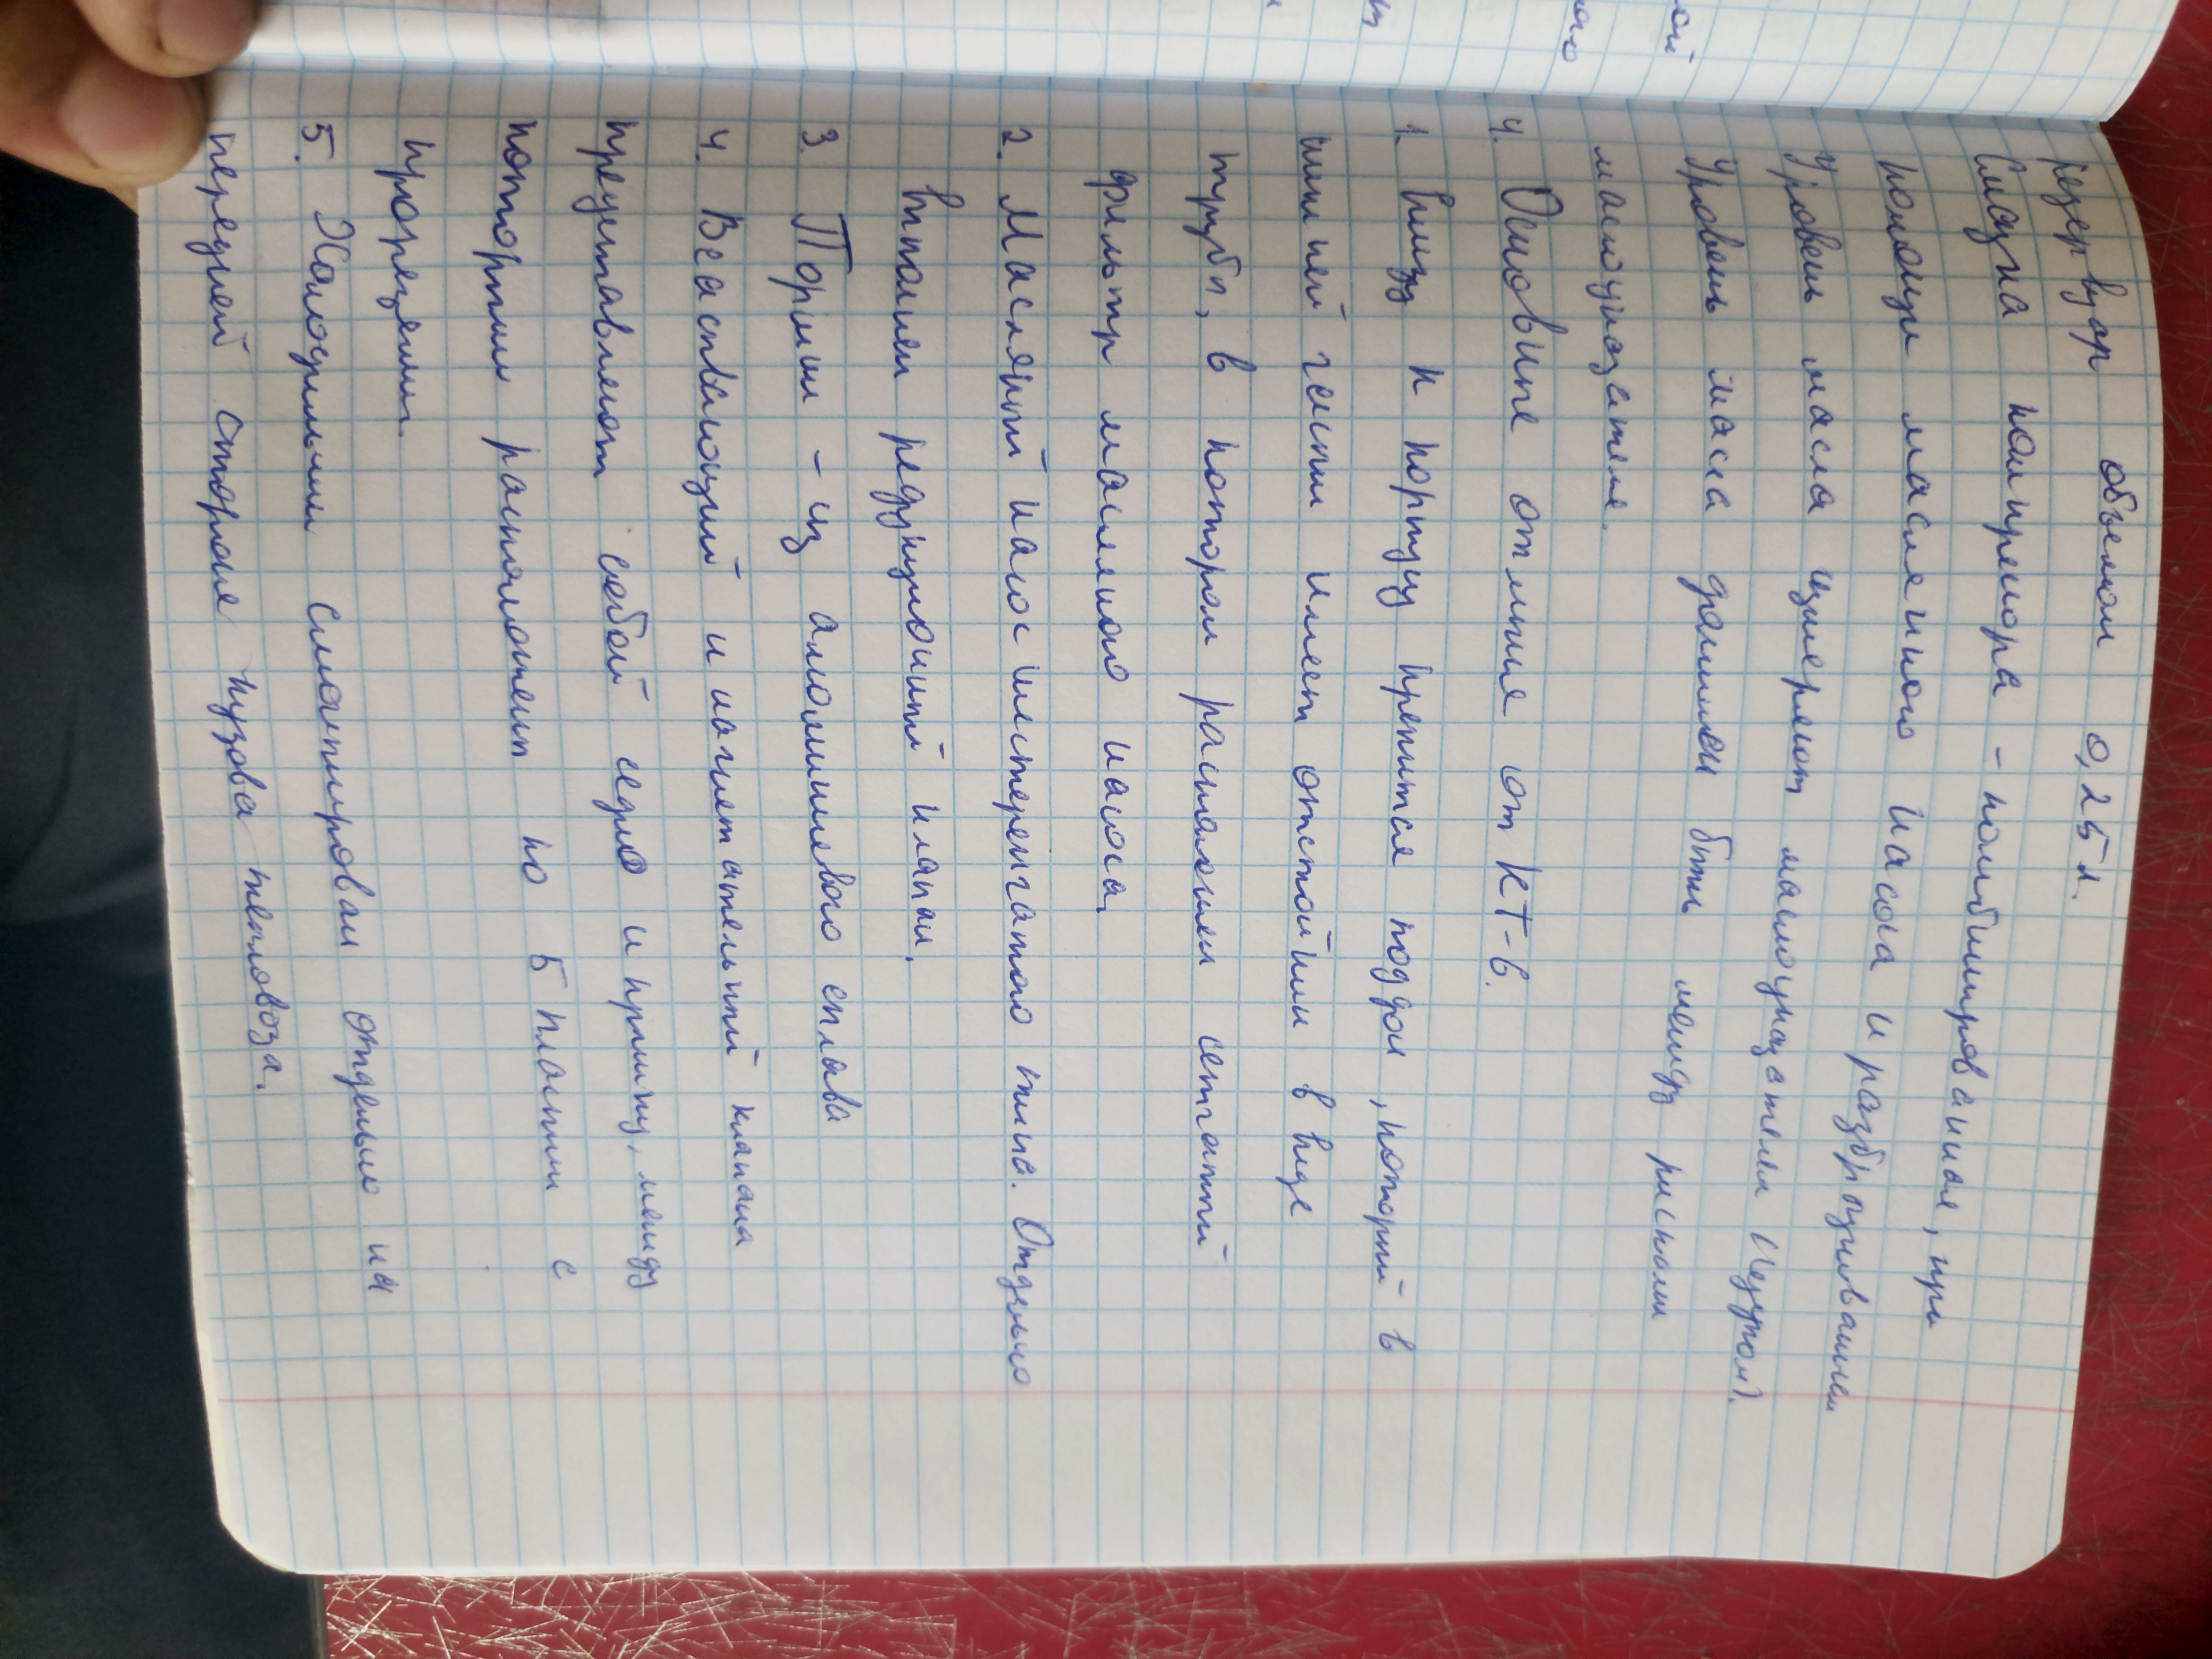 Резервуар объемом 0,25 л.
Смазка компрессора - комбинированная, при
помощи масляного насоса и разбрызгиванием
Уровень масла измеряют маслоуказателем (щупом).
Уровень масла должен быть между рисками
маслоуказателя.
4. Основные отличия от КТ-6.
1. Внизу к корпусу крепится поддон, который в
нижней части имеет отстойник в виде
трубы, в котором расположен сетчатый
фильтр масляного насоса
2. Масляный насос шестеренчатого типа. Отдельно
выполнен редукционный клапан.
3. Поршни - из алюминиевого сплава
4. Всасывающий и нагнетательный клапана
представляют собой седло и крышку, между
которыми расположены по 5 пластин с
прорезями.
5. Холодильник смонтирован отдельно на
передней стороне кузова тепловоза.